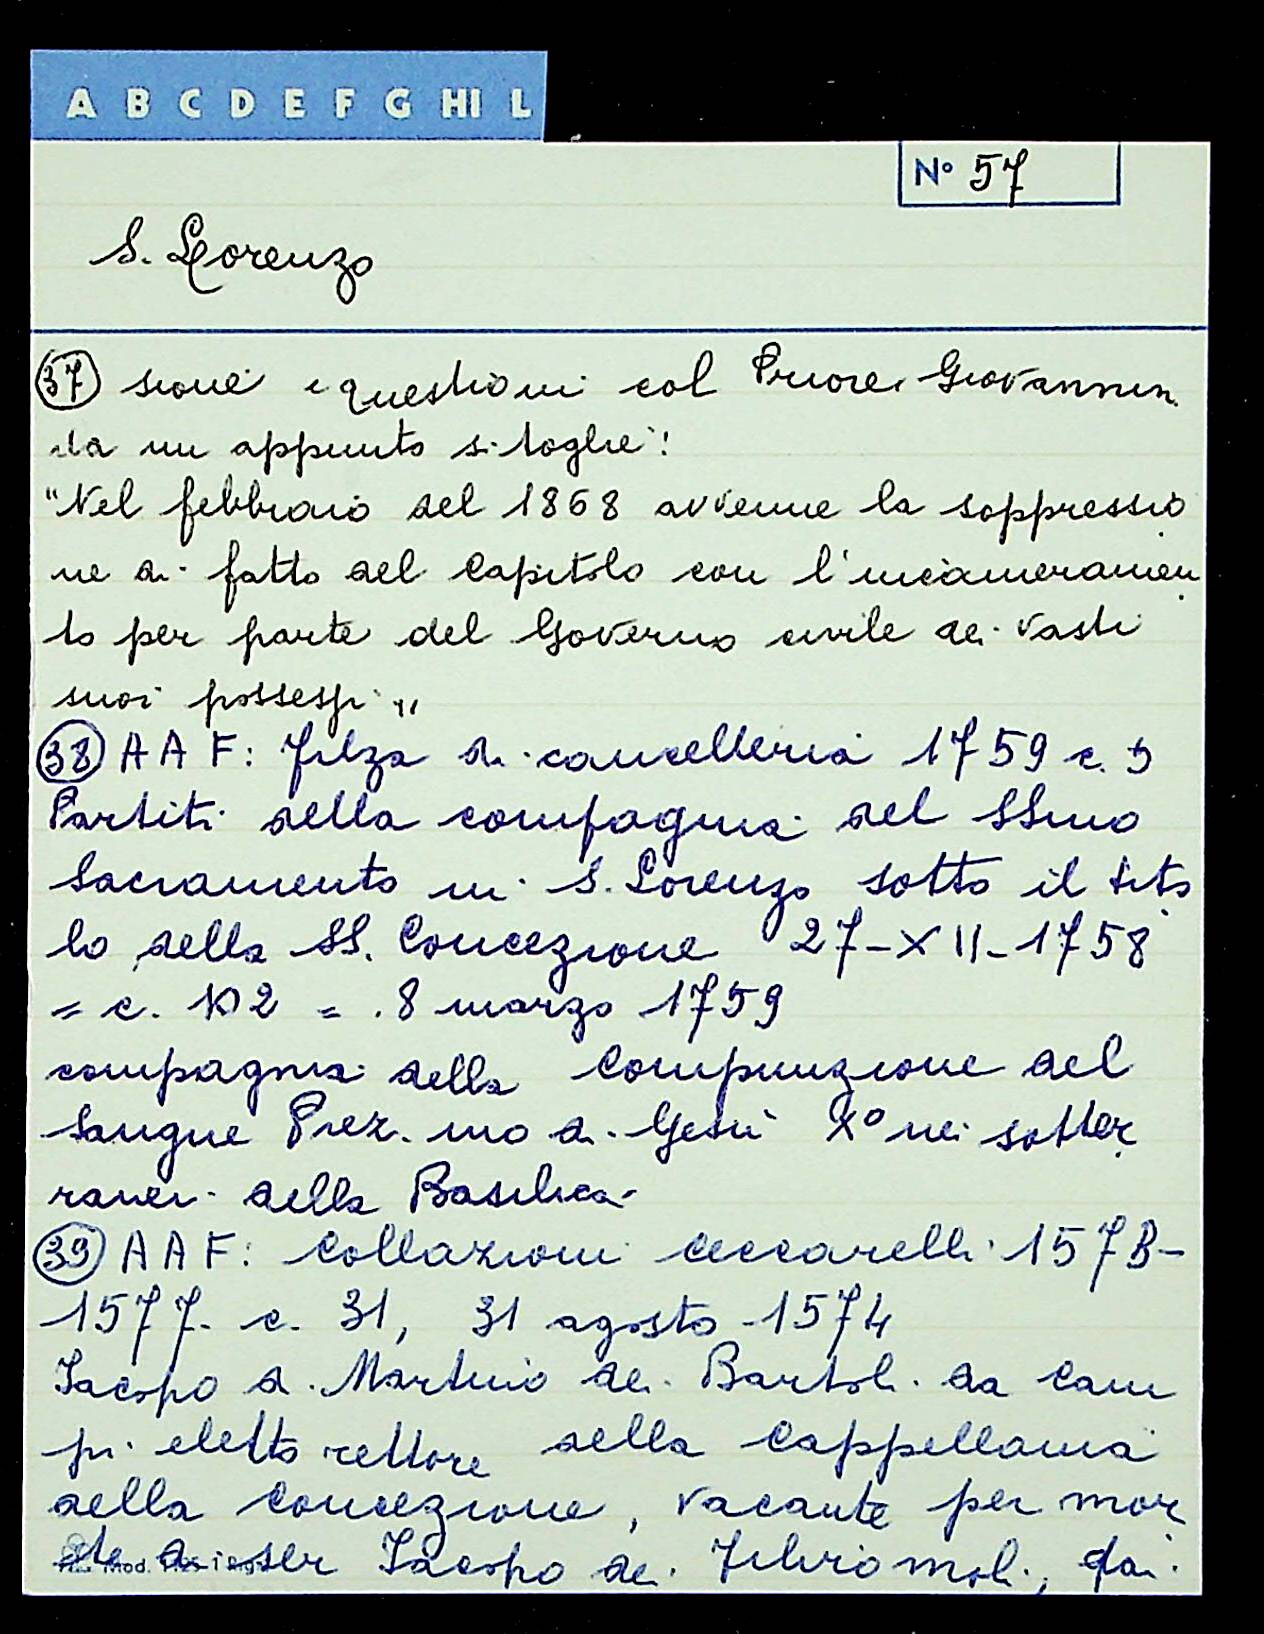 A B C D E F G HI L
N° 57
S. Lorenzo
37 sione e questioni col Priore Giovannin.
da un appunto si toglie:
"Nel febbraio del 1868 avvenne la soppressio
ne di fatto del Capitolo con l'incameramen
to per parte del Governo civile dei vasti
suoi possessi"
38 AAF: Filza di cancelleria 1759 c. 5
Partiti della compagnia del SSmo
Sacramento in S. Lorenzo sotto il tito
lo della SS. Concezione 27-XII-1758
= c. 102 = 8 marzo 1759
compagnia della Compunzione del
Sangue Prez.mo di Gesù Xº nei sotter
ranei della Basilica
39 AAF: Collazioni Ceccarelli 1573-
1577. c. 31, 31 agosto 1574
Iacopo di Martino dei Bartoli da Cam
pi eletto rettore della cappellania
della Concezione, vacante per mor
te di ser Iacopo dei, dai